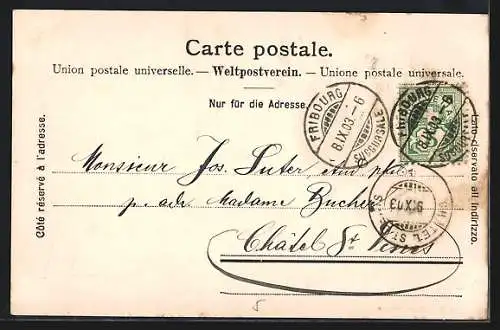 Carte postale.
Union postale universelle. — Weltpostverein. — Unione postale universale.
Nur für die Adresse.
Côté réservé à l'adresse.
Lato riservato all' indirizzo.
FRIBOURG
8.IX.03.-6
SUCCURSALE
FRIBOURG
8.IX.03.-6
SUCCURSALE
Monsieur Jos. Suter,
p. adr. Madame Bucher
Châtel St
CHATEL ST. DENIS
9.IX.03
5